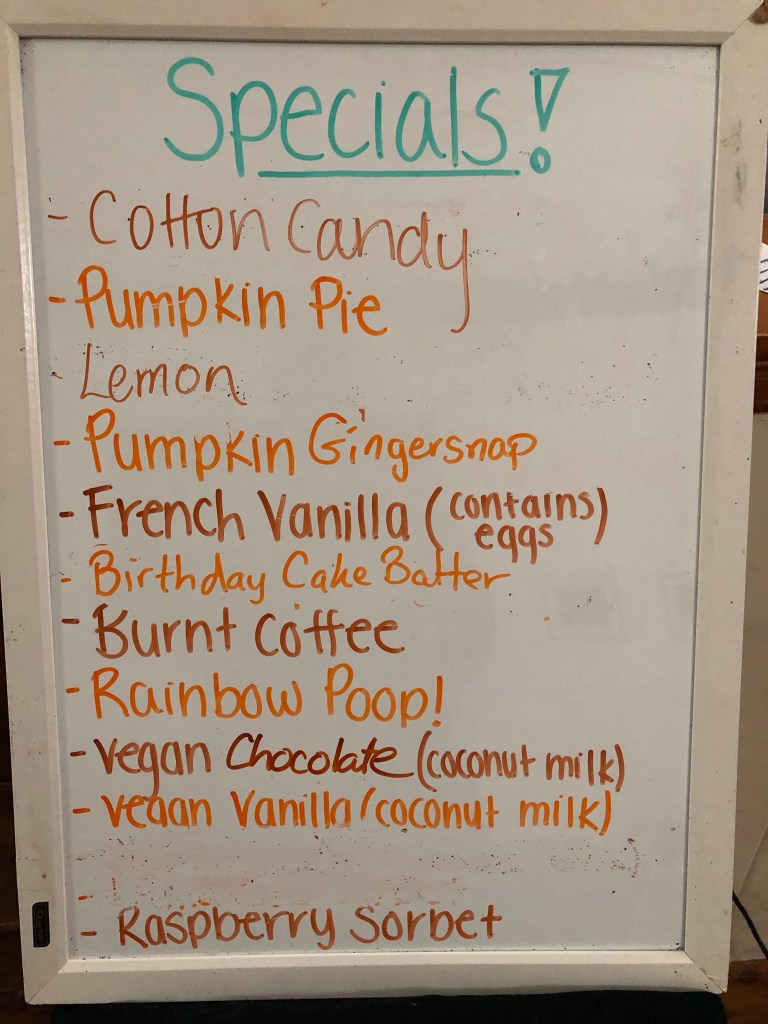 Specials!
- Cotton Candy
- Pumpkin Pie
- Lemon
- Pumpkin Gingersnap
- French Vanilla (contains eggs)
- Birthday Cake Batter
- Burnt Coffee
- Rainbow Poop!
- Vegan Chocolate (coconut milk)
- Vegan Vanilla (coconut milk)
-
- Raspberry Sorbet